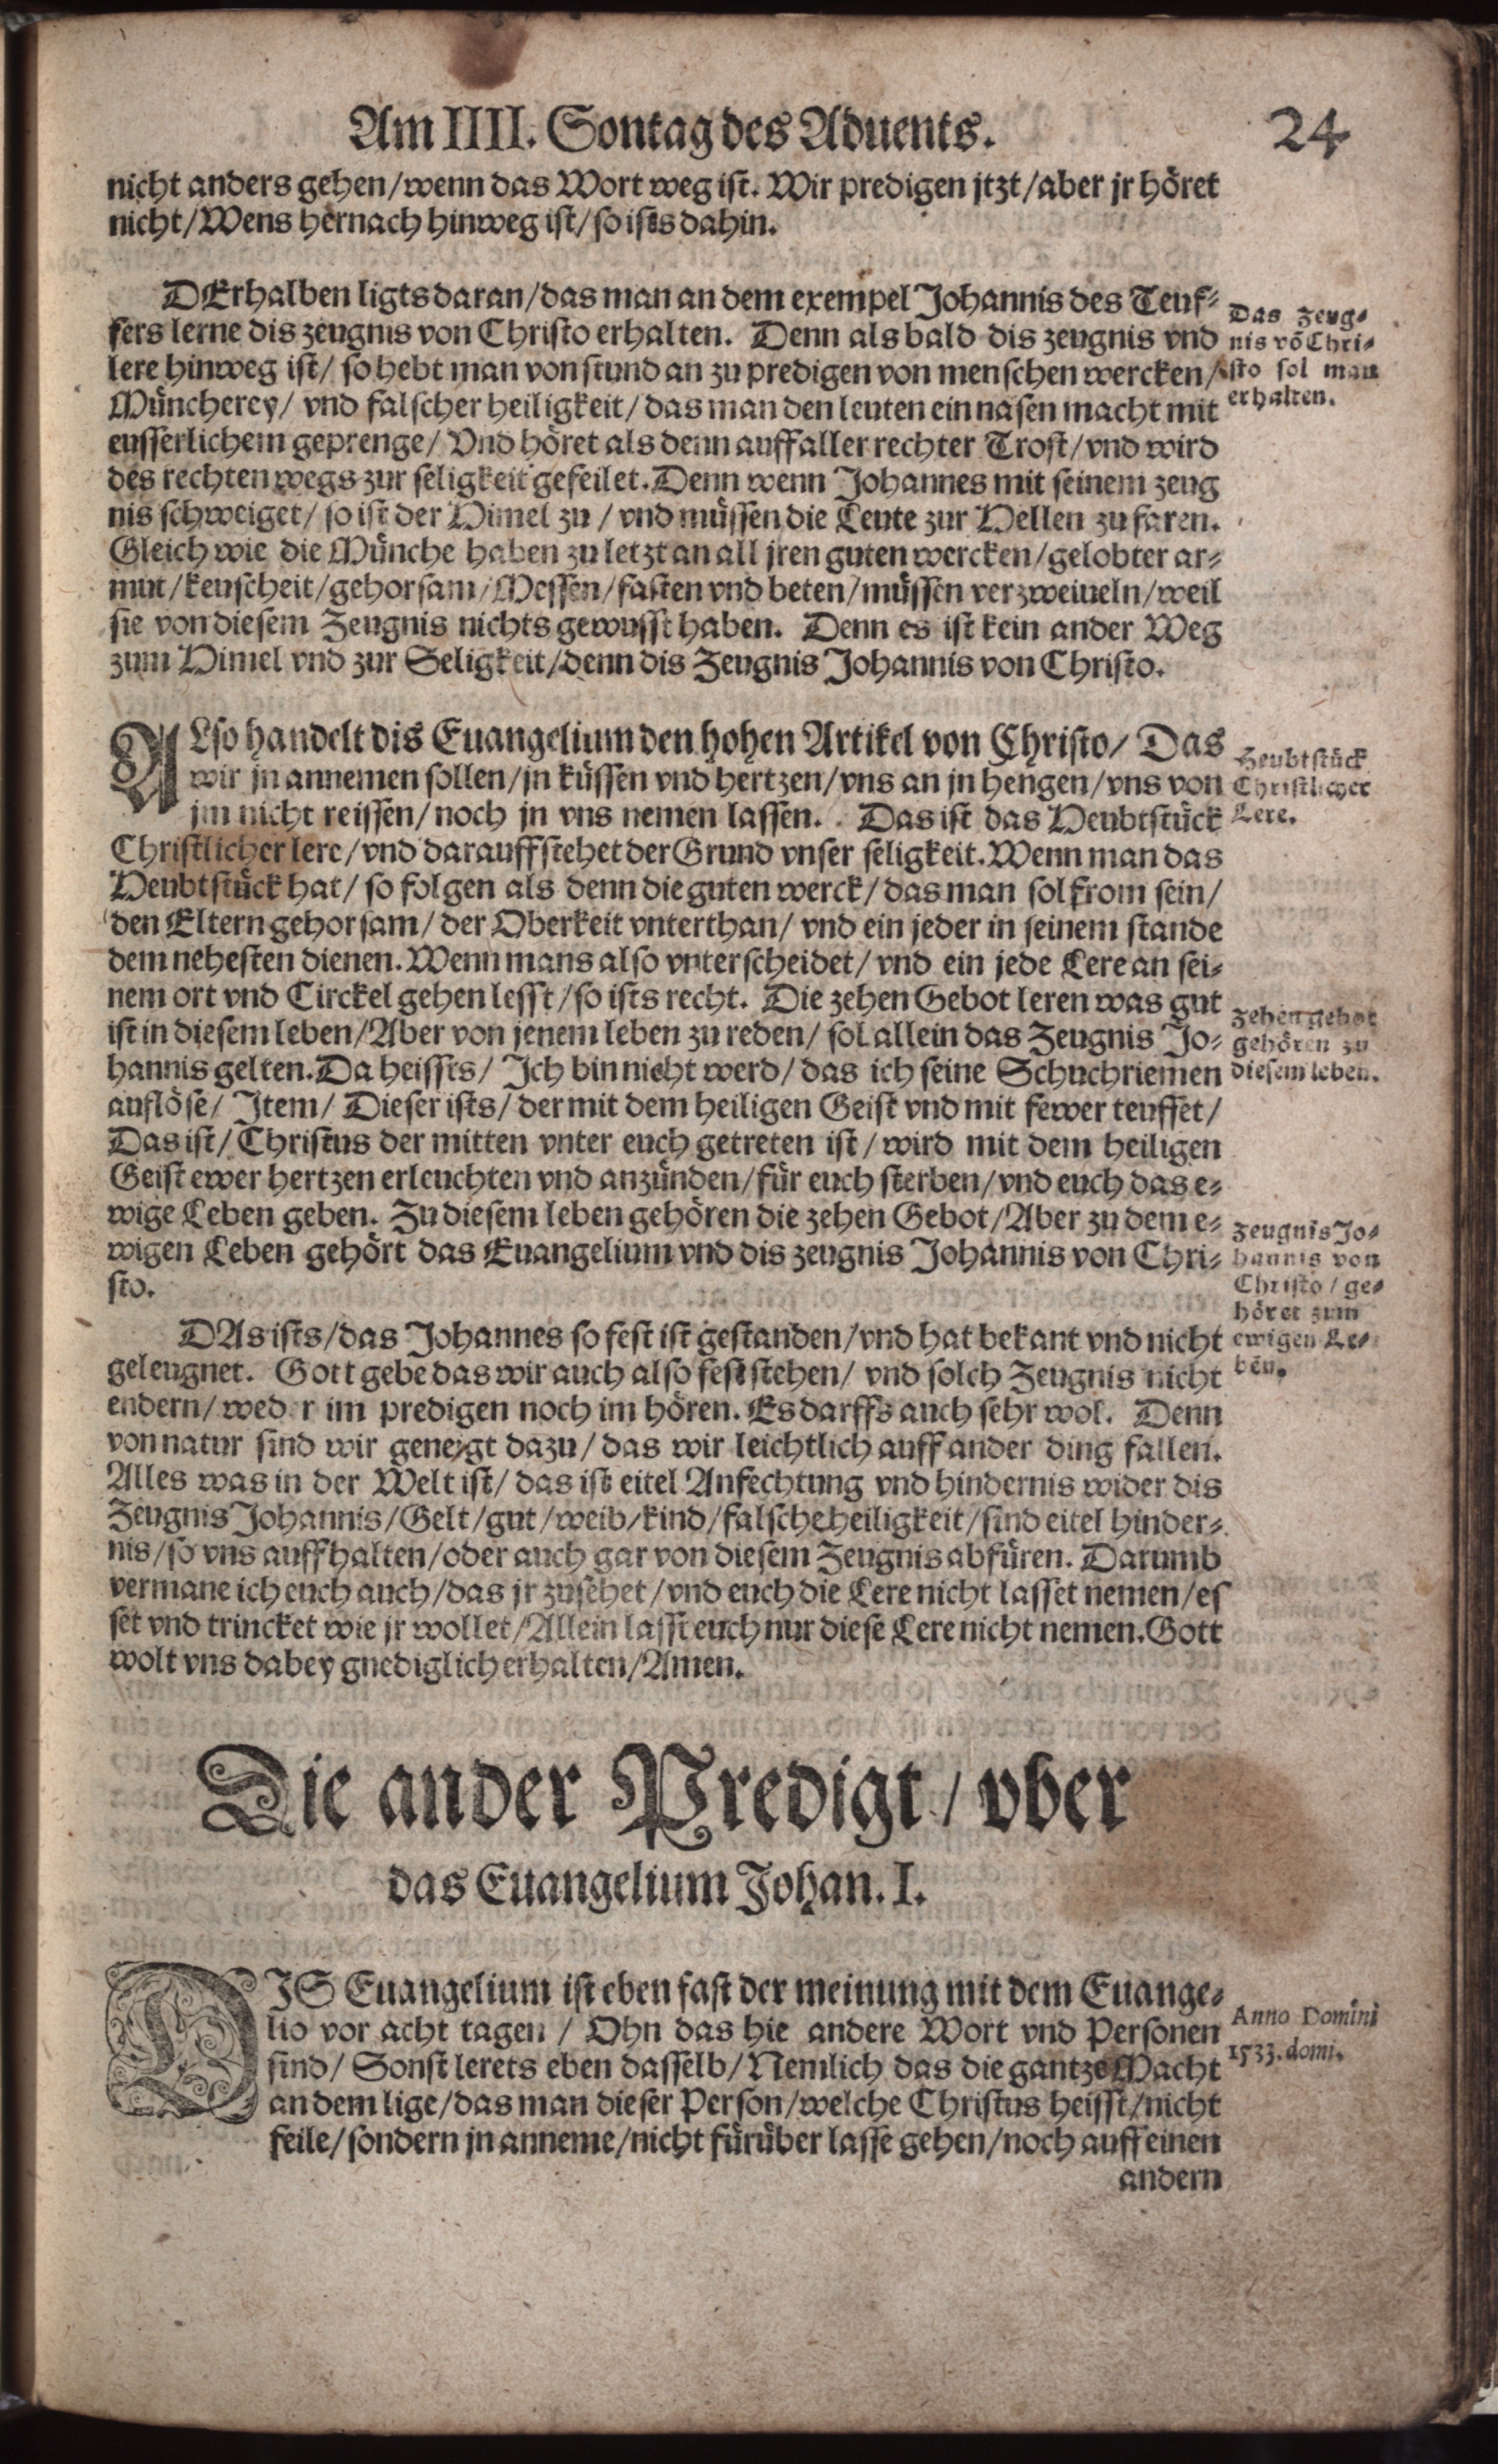 Am IIII. Sontag des Aduents. 24
nicht anders gehen/wenn das Wort weg ist. Wir predigen jtzt/aber jr höret
nicht/Wens hernach hinweg ist/so ists dahin.
DErhalben ligts daran/das man an dem exempel Johannis des Teuf-
fers lerne dis zeugnis von Christo erhalten. Denn als bald dis zeugnis vnd
lere hinweg ist/ so hebt man von stund an zu predigen von menschen wercken/
Müncherey/ vnd falscher heiligkeit/das man den leuten ein nasen macht mit
eusserlichem geprenge/ Vnd höret als denn auff aller rechter Trost/vnd wird
des rechten wegs zur seligkeit gefeilet. Denn wenn Johannes mit seinem zeug
nis schweiget/ so ist der Himel zu/ vnd müssen die Leute zur Hellen zu faren.
Gleich wie die Münche haben zu letzt an all jren guten wercken/gelobter ar-
mut/keuscheit/gehorsam/Messen/fasten vnd beten/müssen verzweiueln/weil
sie von diesem Zeugnis nichts gewusst haben. Denn es ist kein ander Weg
zum Himel vnd zur Seligkeit/denn dis Zeugnis Johannis von Christo.
Das zeug-
nis vō Chri-
sto sol man
erhalten.
ALso handelt dis Euangelium den hohen Artikel von Christo/ Das
wir jn annemen sollen/jn küssen vnd hertzen/vns an jn hengen/vns von
jm nicht reissen/noch jn vns nemen lassen. Das ist das Heubtstück
Christlicher lere/vnd darauff stehet der Grund vnser seligkeit. Wenn man das
Heubtstück hat/ so folgen als denn die guten werck/das man sol from sein/
den Eltern gehorsam/ der Oberkeit vnterthan/ vnd ein jeder in seinem stande
dem nehesten dienen. Wenn mans also vnterscheidet/ vnd ein jede Lere an sei-
nem ort vnd Circkel gehen lesst/so ists recht. Die zehen Gebot leren was gut
ist in diesem leben/Aber von jenem leben zu reden/ sol allein das Zeugnis Jo-
hannis gelten. Da heissts/ Ich bin nicht werd/das ich seine Schuchriemen
auflöse/ Item/ Dieser ists/der mit dem heiligen Geist vnd mit fewer teuffet/
Das ist/ Christus der mitten vnter euch getreten ist/ wird mit dem heiligen
Geist ewer hertzen erleuchten vnd anzünden/für euch sterben/vnd euch das e-
wige Leben geben. Zu diesem leben gehören die zehen Gebot/Aber zu dem e-
wigen Leben gehört das Euangelium vnd dis zeugnis Johannis von Chri-
sto.
Heubtstück
Christlicher
Lere.
Zehen gebot
gehören zu
diesem leben.
Zeugnis Jo-
hannis von
Christo/ ge-
höret zum
ewigen Le-
ben.
DAs ists/das Johannes so fest ist gestanden/vnd hat bekant vnd nicht
geleugnet. Gott gebe das wir auch also fest stehen/ vnd solch Zeugnis nicht
endern/ weder im predigen noch im hören. Es darffs auch sehr wol. Denn
von natur sind wir geneygt dazu/ das wir leichtlich auff ander ding fallen.
Alles was in der Welt ist/ das ist eitel Anfechtung vnd hindernis wider dis
Zeugnis Johannis/Gelt/gut/weib/kind/falsche heiligkeit/sind eitel hinder-
nis/so vns auffhalten/oder auch gar von diesem Zeugnis abfüren. Darumb
vermane ich euch auch/das jr zusehet/vnd euch die Lere nicht lasset nemen/es
set vnd trincket wie jr wollet/Allein lasst euch nur diese Lere nicht nemen. Gott
wolt vns dabey gnediglich erhalten/Amen.
Die ander Predigt/ vber
das Euangelium Johan. I.
DIS Euangelium ist eben fast der meinung mit dem Euange-
lio vor acht tagen/ Ohn das hie andere Wort vnd Personen
sind/ Sonst lerets eben dasselb/Nemlich das die gantze Macht
an dem lige/das man dieser Person/welche Christus heisst/nicht
feile/sondern jn anneme/nicht fürüber lasse gehen/noch auff einen
andern
Anno Domini
1533. domi.